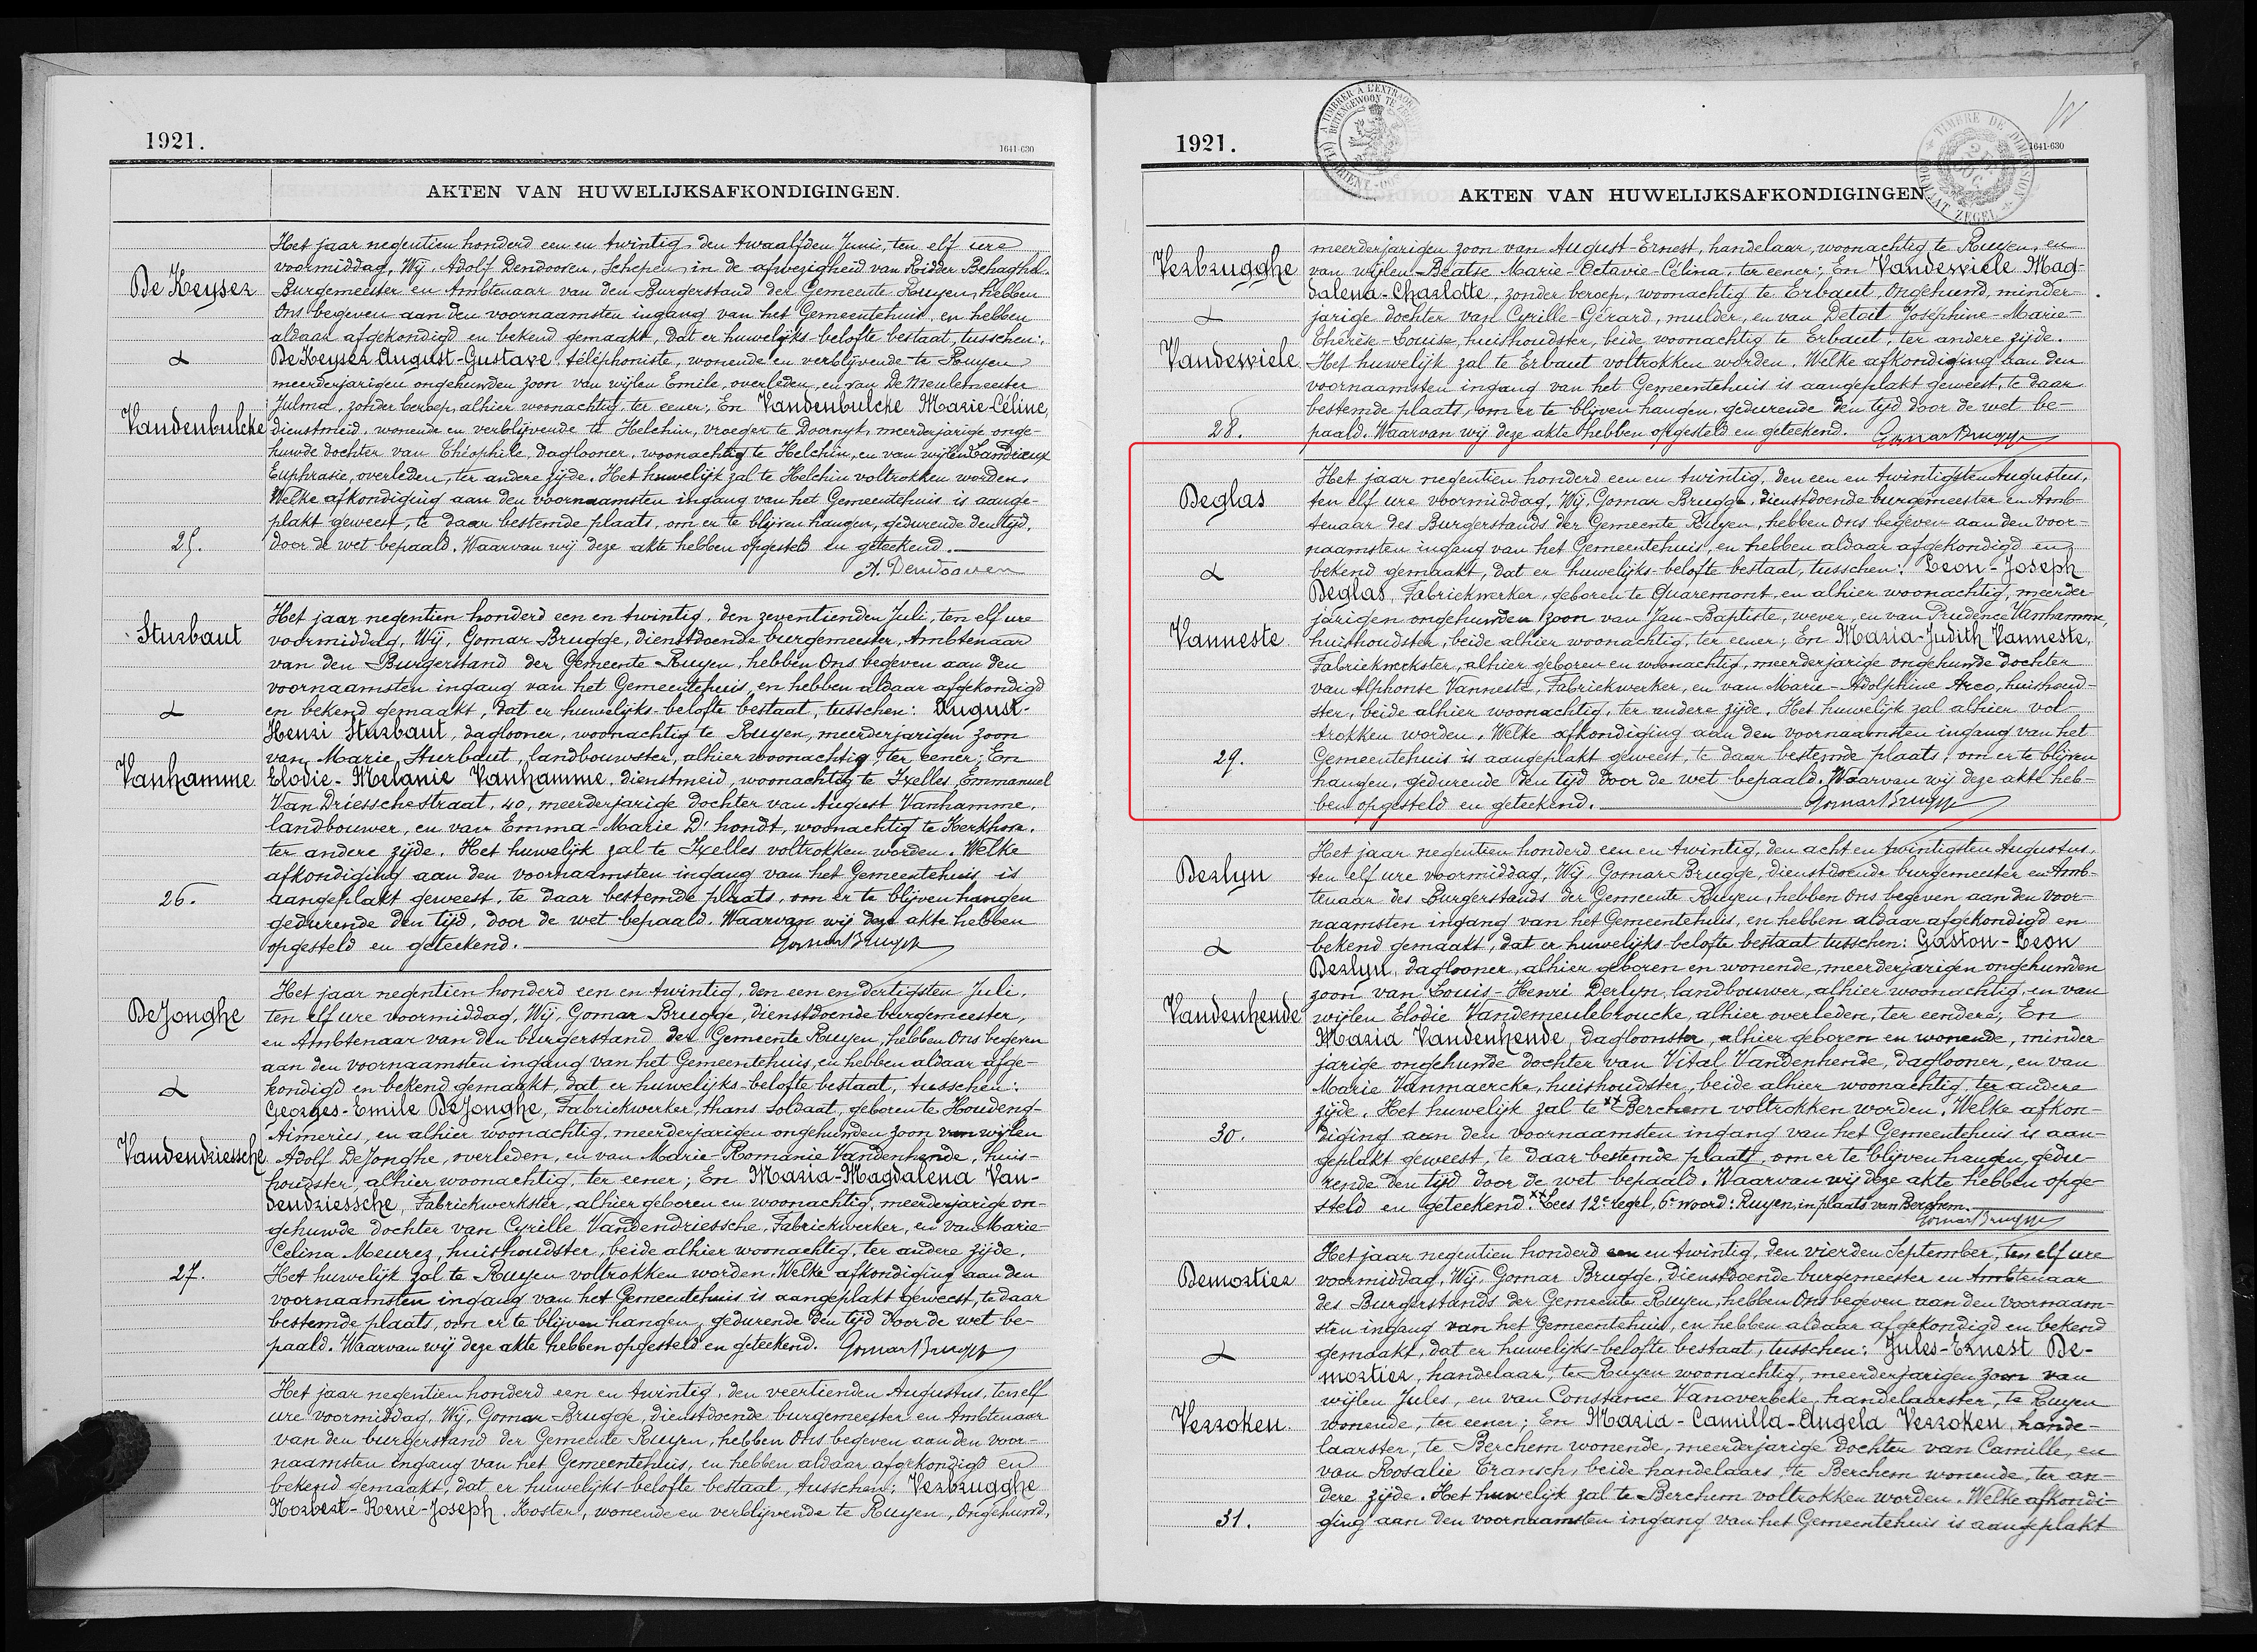 1921.
1641-630
AKTEN VAN HUWELIJKSAFKONDIGINGEN.
De Keyser
&
Vandenbulcke
25.
Het jaar negentien honderd een en twintig, den twaalfden Juni, ten elf ure
voormiddag, Wij, Adolf Dendooven, Schepen in de afwezigheid van Ridder Behaghel.
Burgemeester en Ambtenaar van den Burgerstand der Gemeente Ruyen, hebben
Ons begeven aan den voornaamsten ingang van het Gemeentehuis, en hebben
aldaar afgekondigd en bekend gemaakt, dat er huwelijks-belofte bestaat, tusschen:
De Keyser August-Gustave, téléphoniste, wonende en verblijvende te Ruyen
meerderjarigen ongehuwden zoon van wijlen Emile, overleden, en van De Meulemeester
Julma, zonder beroep, alhier woonachtig, ter eener; En Vandenbulcke Marie-Céline,
dienstmeid, wonende en verblijvende te Helchin, vroeger te Doornyk, meerderjarige onge-
huwde dochter van Théophile, daglooner, woonachtig te Helchin, en van wijlen Landrieux
Euphrasie, overleden, ter andere zijde. Het huwelijk zal te Helchin voltrokken worden.
Welke afkondiging aan den voornaamsten ingang van het Gemeentehuis is aange-
plakt geweest, te daar bestemde plaats, om er te blijven hangen, gedurende den tijd,
door de wet bepaald. Waarvan wij deze akte hebben opgesteld en geteekend.
A. Dendooven
Sturbaut
&
Vanhamme
26.
Het jaar negentien honderd een en twintig, den zeventienden Juli, ten elf ure
voormiddag, Wij, Gomar Brugge, dienstdoende burgemeester, Ambtenaar
van den Burgerstand der Gemeente Ruyen, hebben Ons begeven aan den
voornaamsten ingang van het Gemeentehuis, en hebben aldaar afgekondigd
en bekend gemaakt, dat er huwelijks-belofte bestaat, tusschen: August-
Henri Sturbaut, daglooner, woonachtig te Ruyen, meerderjarigen zoon
van Marie Sturbaut, landbouwster, alhier woonachtig, ter eener; En
Elodie-Melanie Vanhamme, dienstmeid, woonachtig te Ixelles, Emmanuel
Van Driesschestraat, 40, meerderjarige dochter van August Vanhamme,
landbouwer, en van Emma-Marie D'hondt, woonachtig te Kerkhove.
ter andere zijde. Het huwelijk zal te Ixelles voltrokken worden. Welke
afkondiging aan den voornaamsten ingang van het Gemeentehuis is
aangeplakt geweest, te daar bestemde plaats, om er te blijven hangen
gedurende den tijd, door de wet bepaald. Waarvan wij deze akte hebben
opgesteld en geteekend.
Gomar Brugge
De Jonghe
&
Vandendriessche
27.
Het jaar negentien honderd een en twintig, den een en dertigsten Juli,
ten elf ure voormiddag, Wij, Gomar Brugge, dienstdoende burgemeester,
en Ambtenaar van den burgerstand der Gemeente Ruyen, hebben Ons begeven
aan den voornaamsten ingang van het Gemeentehuis, en hebben aldaar afge-
kondigd en bekend gemaakt, dat er huwelijks-belofte bestaat, tusschen:
Georges-Emile De Jonghe, Fabriekwerker, thans soldaat, geboren te Houdeng-
Aimeries, en alhier woonachtig, meerderjarigen ongehuwden zoon van wijlen
Adolf De Jonghe, overleden, en van Marie-Romanie Vandenhende, huis-
houdster, alhier woonachtig, ter eener; En Maria-Magdalena Van-
dendriessche, Fabriekwerkster, alhier geboren en woonachtig, meerderjarige on-
gehuwde dochter van Cyrille Vandendriessche, Fabriekwerker, en van Marie-
Celina Meurez, huishoudster, beide alhier woonachtig, ter andere zijde.
Het huwelijk zal te Ruyen voltrokken worden. Welke afkondiging aan den
voornaamsten ingang van het Gemeentehuis is aangeplakt geweest, te daar
bestemde plaats, om er te blijven hangen, gedurende den tijd door de wet be-
paald. Waarvan wij deze akte hebben opgesteld en geteekend. Gomar Brugge
Het jaar negentien honderd een en twintig, den veertienden Augustus, ten elf
ure voormiddag, Wij, Gomar Brugge, dienstdoende burgemeester en Ambtenaar
van den burgerstand der Gemeente Ruyen, hebben Ons begeven aan den voor-
naamsten ingang van het Gemeentehuis, en hebben aldaar afgekondigd en
bekend gemaakt, dat er huwelijks-belofte bestaat, tusschen: Verbrugghe
Norbert-René-Joseph, Koster, wonende en verblijvende te Ruyen, Ongehuwd,
1921.
1641-630
AKTEN VAN HUWELIJKSAFKONDIGINGEN
Verbrugghe
&
Vandewiele
28.
meerderjarigen zoon van August-Ernest, handelaar, woonachtig te Ruyen, en
van wijlen Beatse Marie-Octavie-Célina, ter eener; En Vandewiele Mag-
dalena-Charlotte, zonder beroep, woonachtig te Erbaut, Ongehuwd, minder-
jarige dochter van Cyrille-Gérard, mulder, en van Detail Joséphine-Marie-
Thérèse-Louise, huishoudster, beide woonachtig te Erbaut, ter andere zijde.
Het huwelijk zal te Erbaut voltrokken worden. Welke afkondiging aan den
voornaamsten ingang van het Gemeentehuis is aangeplakt geweest, te daar
bestemde plaats, om er te blijven hangen, gedurende den tijd door de wet be-
paald. Waarvan wij deze akte hebben opgesteld en geteekend. Gomar Brugge
Deglas
&
Vanneste
29.
Het jaar negentien honderd een en twintig, den een en twintigsten Augustus,
ten elf ure voormiddag, Wij, Gomar Brugge, dienstdoende burgemeester en Amb-
tenaar des Burgerstands der Gemeente Ruyen, hebben Ons begeven aan den voor-
naamsten ingang van het Gemeentehuis, en hebben aldaar afgekondigd en
bekend gemaakt, dat er huwelijks-belofte bestaat, tusschen: Leon-Joseph
Deglas, Fabriekwerker, geboren te Quaremont, en alhier woonachtig, meerder-
jarigen ongehuwden zoon van Jan-Baptiste, wever, en van Prudence Vanhamme,
huishoudster, beide alhier woonachtig, ter eener; En Maria-Judith Vanneste,
Fabriekwerkster, alhier geboren en woonachtig, meerderjarige ongehuwde dochter
van Alphonse Vanneste, Fabriekwerker, en van Marie-Adolphine Arco, huishoud-
ster, beide alhier woonachtig, ter andere zijde. Het huwelijk zal alhier vol-
trokken worden. Welke afkondiging aan den voornaamsten ingang van het
Gemeentehuis is aangeplakt geweest, te daar bestemde plaats, om er te blijven
hangen, gedurende den tijd door de wet bepaald. Waarvan wij deze akte heb-
ben opgesteld en geteekend. Gomar Brugge
Derlyn
&
Vandenhende
30.
Het jaar negentien honderd een en twintig, den acht en twintigsten Augustus,
ten elf ure voormiddag, Wij, Gomar Brugge, dienstdoende burgemeester en Amb-
tenaar des Burgerstands der Gemeente Ruyen, hebben Ons begeven aan den voor-
naamsten ingang van het Gemeentehuis, en hebben aldaar afgekondigd en
bekend gemaakt, dat er huwelijks-belofte bestaat tusschen: Gaston-Leon
Derlyn, daglooner, alhier geboren en wonende, meerderjarigen ongehuwden
zoon van Louis-Henri Derlyn, landbouwer, alhier woonachtig, en van
wijlen Elodie Vandemeulebroucke, alhier overleden, ter eendere; En
Maria Vandenhende, dagloonster, alhier geboren en wonende, minder-
jarige ongehuwde dochter van Vital Vandenhende, daglooner, en van
Marie Vanmaercke, huishoudster, beide alhier woonachtig, ter andere
zijde. Het huwelijk zal te xx Berchem voltrokken worden. Welke afkon-
diging aan den voornaamsten ingang van het Gemeentehuis is aan-
geplakt geweest, te daar bestemde plaats, om er te blijven hangen, gedu-
rende den tijd door de wet bepaald. Waarvan wij deze akte hebben opge-
steld en geteekend. xx Lees 12e regel, 6e woord: Ruyen, in plaats van Berchem.
Gomar Brugge
Demortier
&
Verroken.
31.
Het jaar negentien honderd een en twintig, den vierden September, ten elf ure
voormiddag, Wij, Gomar Brugge, Dienstdoende burgemeester en Ambtenaar
des Burgerstands der Gemeente Ruyen, hebben Ons begeven aan den voornaam-
sten ingang van het Gemeentehuis, en hebben aldaar afgekondigd en bekend
gemaakt, dat er huwelijks-belofte bestaat, tusschen: Jules-Ernest De-
mortier, handelaar, te Ruyen woonachtig, meerderjarigen zoon van
wijlen Jules, en van Constance Vanoverbeke, handelaarster, te Ruyen
wonende, ter eener; En Maria-Camilla-Angela Verroken, hande-
laarster, te Berchem wonende, meerderjarige dochter van Camille, en
van Rosalie Transch, beide handelaars, te Berchem wonende, ter an-
dere zijde. Het huwelijk zal te Berchem voltrokken worden. Welke afkondi-
ging aan den voornaamsten ingang van het Gemeentehuis is aangeplakt